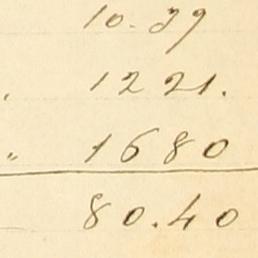 10.39
, 1221.
" 1680
80.40